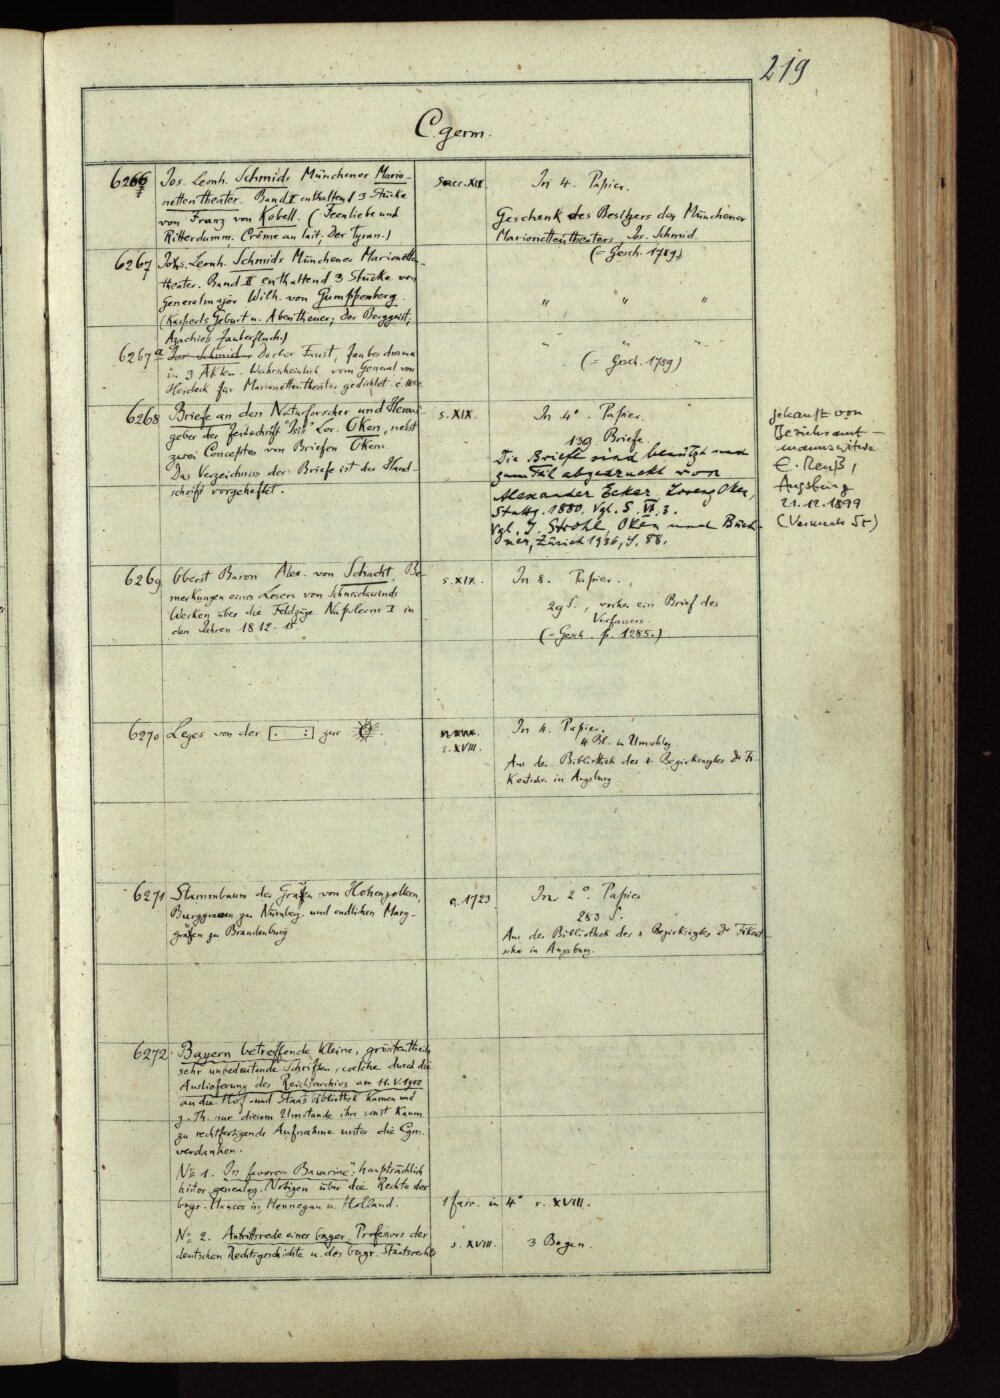 219
C. germ.
6266 Jos. Leonh. Schmids Münchener Mario-
nettentheater. Band I enthaltend 3 Stücke
von Franz von Kobell. (Feenliebe und
Ritterdumm, Crême au lait, Der Tyran.)
saec. XIX.
In 4. Papier.
Geschenk des Besitzers des Münchener
Marionettentheaters, Jos. Schmid.
(= Gesch. 1789)
6267 Jos. Leonh. Schmids Münchener Marionetten-
theater. Band II enthaltend 3 Stücke von
Generalmajor Wilh. von Gumppenberg.
(Kasperls Geburt u. Abentheuer; Der Berggeist;
Zauberfluch.)
" " "
6267a Jos. Schmid Doctor Faust, Zauberdrama
in 3 Akten. Wahrscheinlich vom General von
Heideck für Marionettentheater gedichtet. c. 1850.
" " "
(= Gesch. 1789)
6268 Briefe an den Naturforscher und Heraus-
geber der Zeitschrift "Isis" Lor. Oken, nebst
zwei Concepten von Briefen Okens.
Das Verzeichniss der Briefe ist der Hand-
schrift vorgeheftet.
s. XIX.
In 4°. Papier.
139 Briefe.
Die Briefe sind benützt und
zum Teil abgedruckt von
Alexander Ecker, Lorenz Oken,
Stuttg. 1880. Vgl. S. VI. 3.
Vgl. J. Strohl, Oken und Büch-
ner, Zürich 1936, S. 88.
gekauft von
Bezirksamt-
mannswitwe
E. Reuß,
Augsburg
21.12.1899
(Vermerk St)
6269 Oberst Baron Alex. von Schacht, Be-
merkungen eines Lesers von Schneidawinds
Werken über die Feldzüge Napoleons I in
den Jahren 1812-15.
s. XIX.
In 8. Papier.
29 S., vorher ein Brief des
Verfassers.
(= Gesch. p. 1285.)
6270 Leges von der [. :] zur
s. XVIII.
In 4. Papier.
4 Bl. in Umschlag
Aus der Bibliothek des † Bezirksarztes Dr Fi-
kentscher in Augsburg.
6271 Stammbaum der Grafen von Hohenzollern,
Burggrauen zu Nürnberg und endlichen Marg-
grafen zu Brandenburg
a. 1723
In 2°. Papier
283 S.
Aus der Bibliothek des † Bezirksarztes Dr Fikent-
scher in Augsburg.
6272. Bayern betreffende kleine, grösstentheils
sehr unbedeutende Schriften, welche durch die
Auslieferung des Reichsarchivs am 11.V.1900
an die Hof- und Staatsbibliothek kamen und
z. Th. nur diesem Umstande ihre sonst kaum
zu rechtfertigende Aufnahme unter die Cgm.
verdanken.
No 1. In favorem Bavariae: hauptsächlich
histor. genealog. Notizen über die Rechte des
bayr. Hauses in Hennegau u. Holland.
1 fasc. in 4° s. XVIII.
No 2. Antrittsrede eines bayer. Professors der
deutschen Rechtsgeschichte u. des bayr. Staatsrechts
s. XVIII.
3 Bogen.